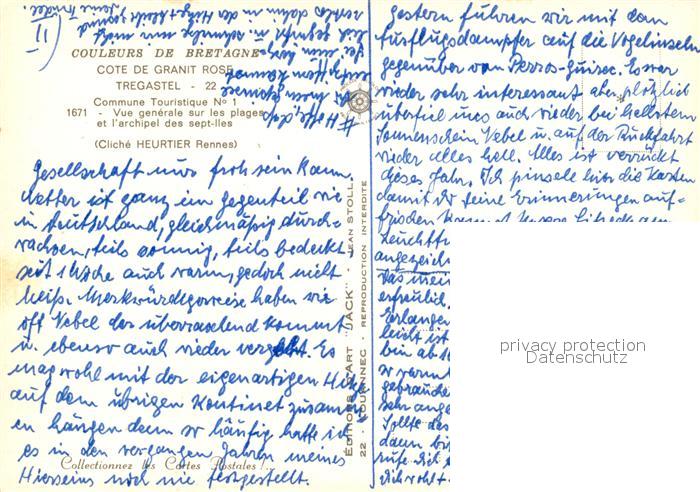 COULEURS DE BRETAGNE
COTE DE GRANIT ROSE
TREGASTEL - 22
Commune Touristique No 1
1671 - Vue générale sur les plages
et l'archipel des sept-Iles
(Cliché HEURTIER Rennes)
Gesellschaft nur froh sein kann.
Wetter ist ganz im gegenteil wie
in Deutschland, gleichmäßig durch-
wachsen, teils sonnig, teils bedeckt
seit 1 Woche auch warm, jedoch nicht
heiß. Merkwürdigerweise haben wir
oft Nebel der überraschend kommt
u. ebenso auch wieder vergeht. Es
mag wohl mit der eigenartigen Hitze
auf dem übrigen Kontinent zusam
en hängen denn so häufig hatte ich
es in den vergangen Jahren meines
Hierseins noch nie festgestellt.
Collectionnez les Cartes Postales !...
EDITIONS D'ART "JACK" - JEAN STOLL
22 - LOUANNEC - REPRODUCTION INTERDITE
gestern fuhren wir mit dem
Ausflugsdampfer auf die Vogelinseln
gegenüber von Perros-Guirec. Es war
wieder sehr interessant aber plötzlich
überfiel uns auch wieder bei hellstem
Sonnenschein Nebel u. auf der Rückfahrt
wieder alles hell. Alles ist verrückt
dieses Jahr. Ich pinsele hier die Karten
damit Ihr Erinnerungen auf-
Leuchttu
angezeich
Das mei
erfreulich
Erlangen
leicht ist
bin ab 1
gebrauche
sehr ange
Sollte des
dann bi
rufe Dich
Dich wohl +
privacy protection
Datenschutz